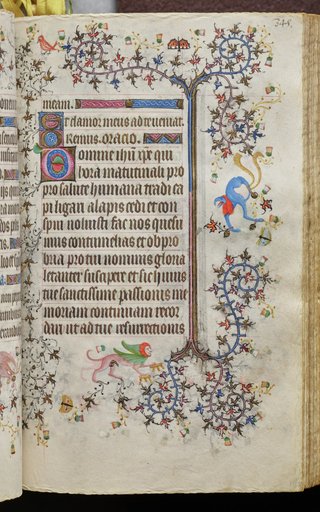 345.
meam.
Et clamor meus ad te veniat.
Oremus. oracio.
Domine ihu xpe qui
hora matutinali pro
pro salute humana tradi ca
pi ligari alapis cedi et con
spui voluisti fac nos quesu
mus contumelias et obpro
bria pro tui nominis gloria
letanter suscipere et sic huius
tue sanctissime passionis me
moriam continuam recor
dari ut ad tue resurrectionis